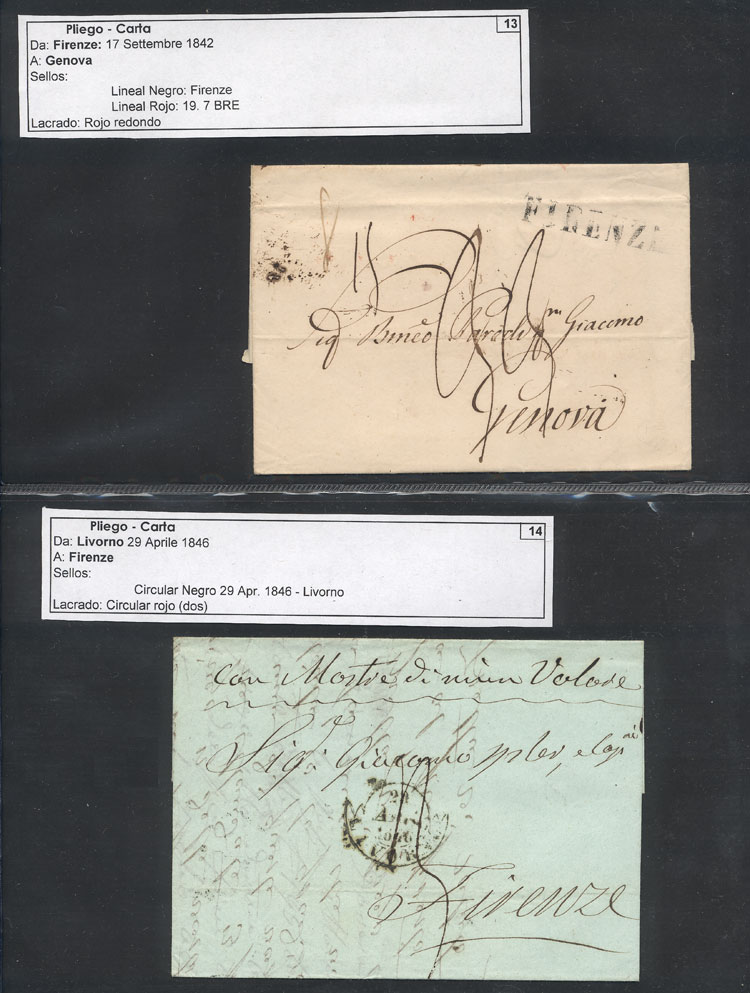 Pliego - Carta
13
Da: Firenze: 17 Settembre 1842
A: Genova
Sellos:
Lineal Negro: Firenze
Lineal Rojo: 19. 7 BRE
Lacrado: Rojo redondo
FIRENZE
Giacomo
Genova
Pliego - Carta
14
Da: Livorno 29 Aprile 1846
A: Firenze
Sellos:
Circular Negro 29 Apr. 1846 - Livorno
Lacrado: Circular rojo (dos)
con Mostre di niun Valore
Sigr: Giacomo
1846
LIVORNO
Firenze